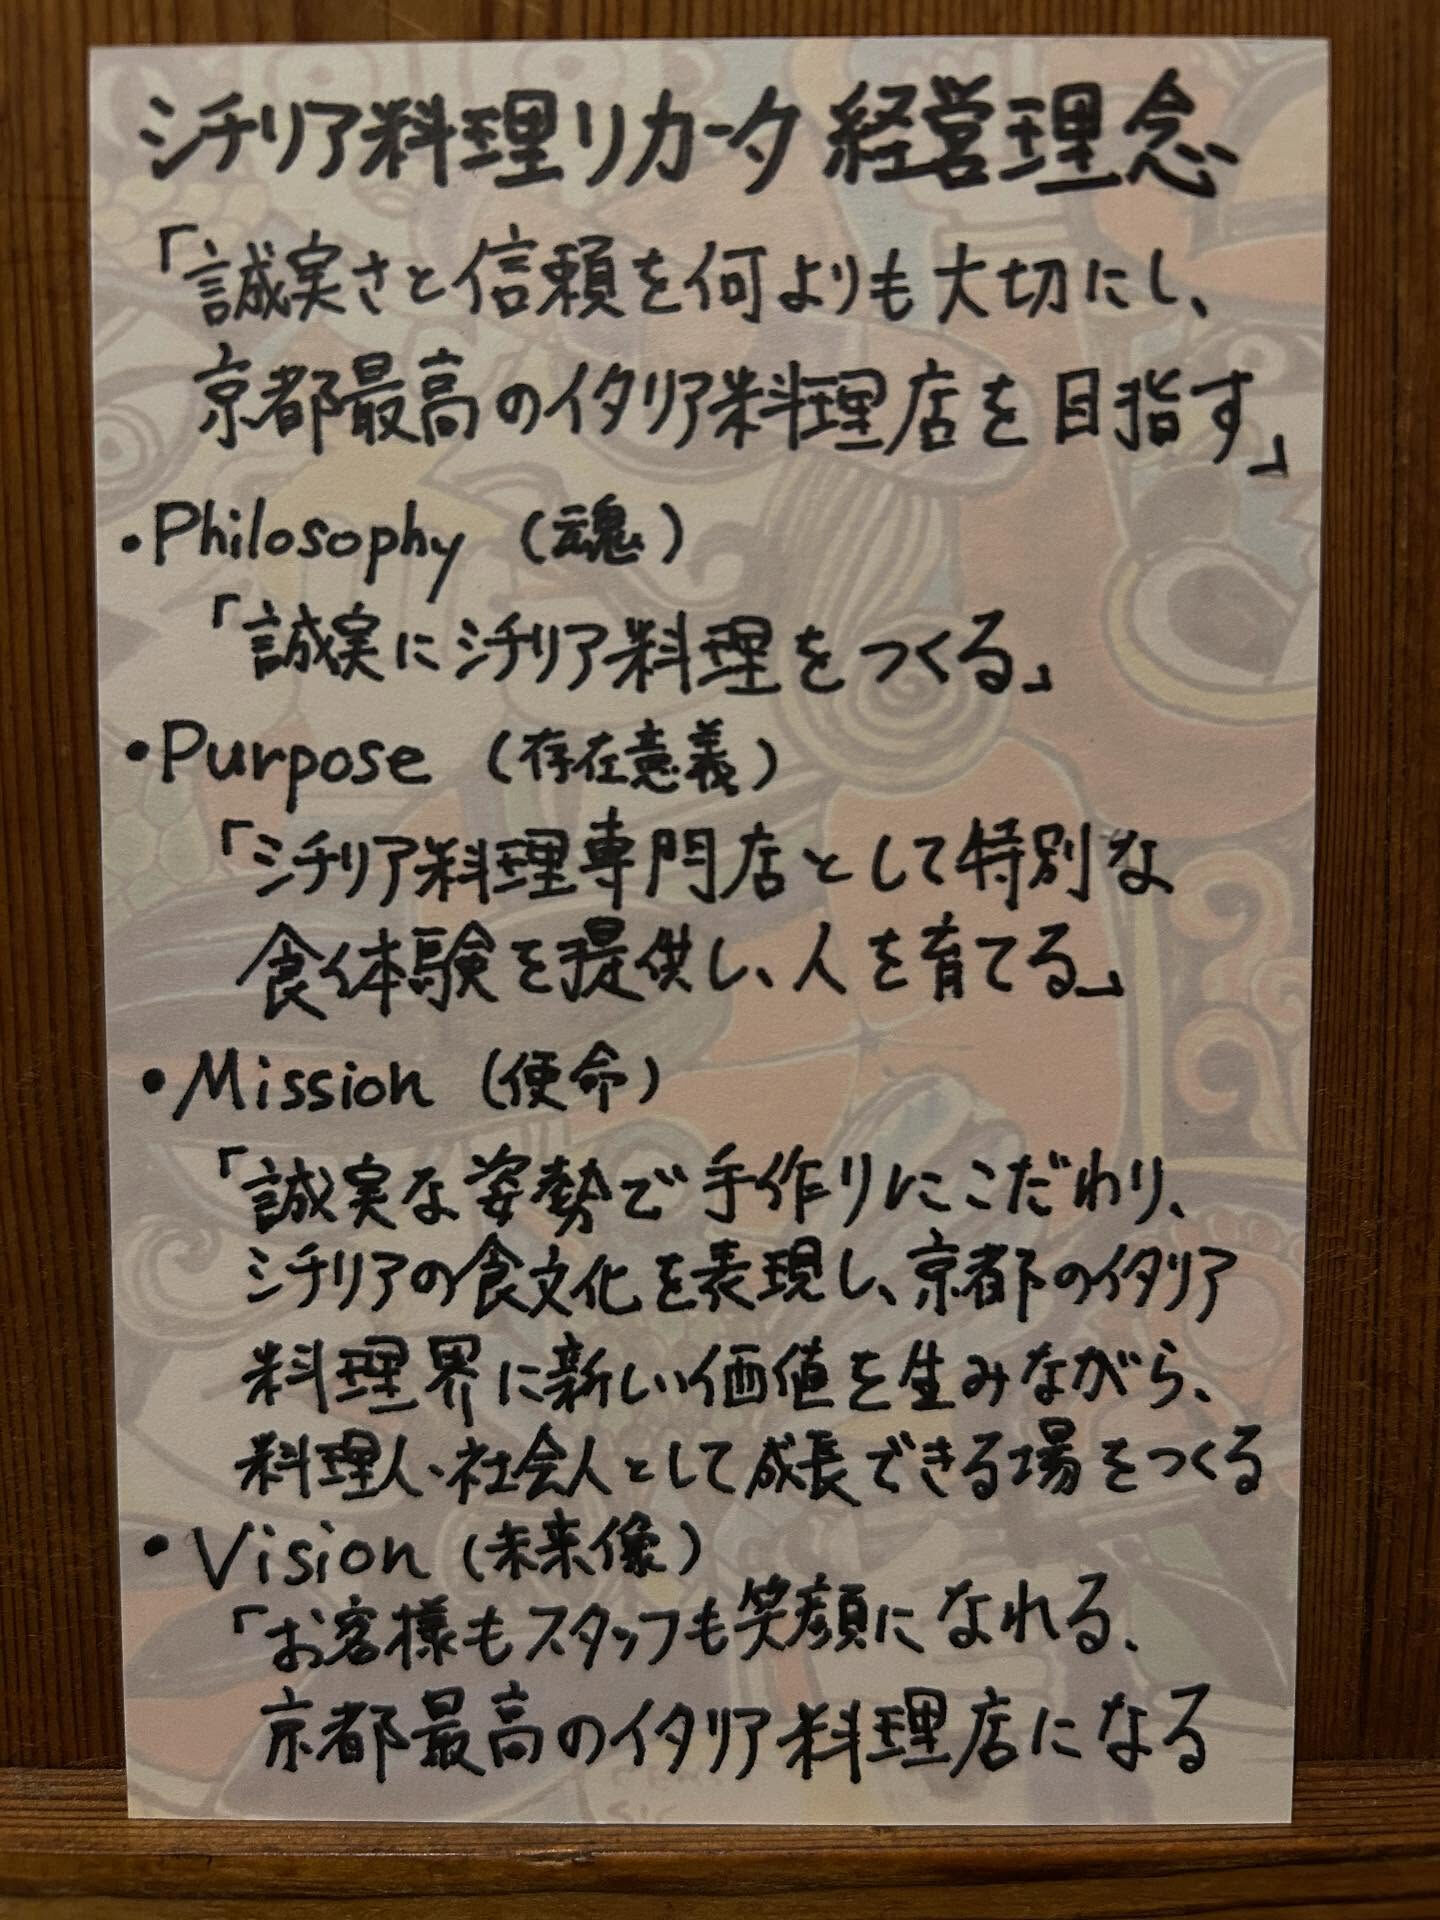 シチリア料理リカータ 経営理念
「誠実さと信頼を何よりも大切にし、
京都最高のイタリア料理店を目指す」
・Philosophy (魂)
「誠実にシチリア料理をつくる」
・Purpose (存在意義)
「シチリア料理専門店として特別な
食体験を提供し、人を育てる」
・Mission (使命)
「誠実な姿勢で手作りにこだわり、
シチリアの食文化を表現し、京都のイタリア
料理界に新しい価値を生みながら、
料理人・社会人として成長できる場をつくる
・Vision (未来像)
「お客様もスタッフも笑顔になれる、
京都最高のイタリア料理店になる